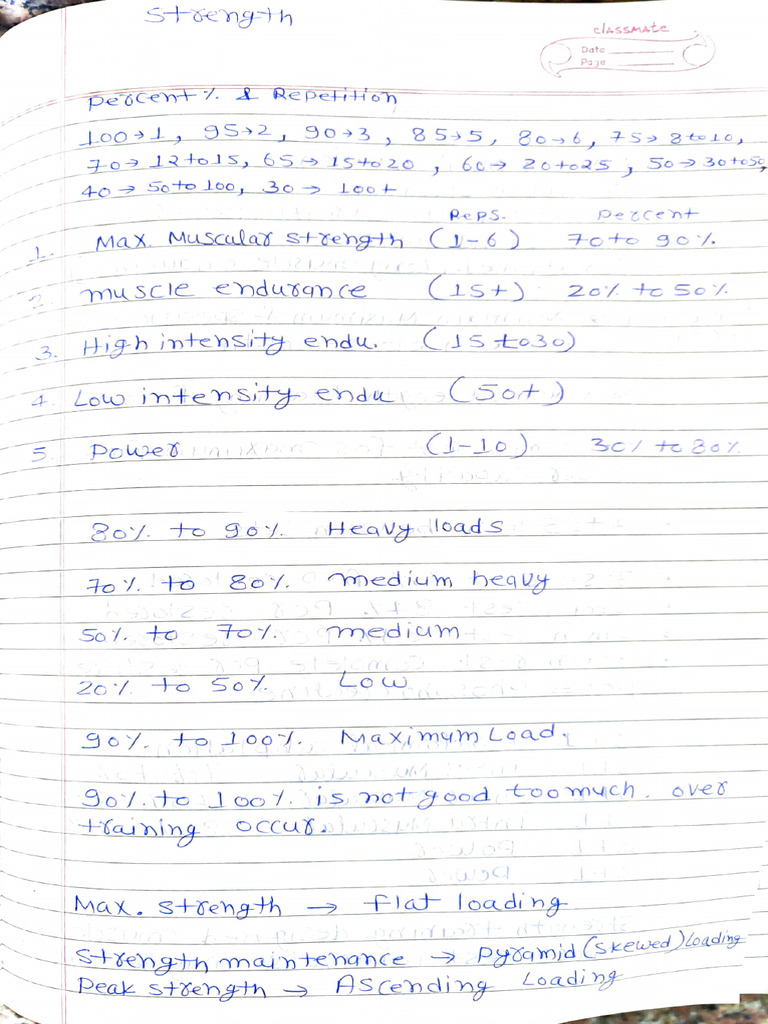 Strength
classmate
Date
Page
Percent % & Repetition
100→1, 95→2, 90→3, 85→5, 80→6, 75→8to10,
70→12to15, 65→15to20, 60→20to25, 50→30to50,
40→50to100, 30→100+
Reps. Percent
1. Max. Muscular strength (1-6) 70to 90%.
2. muscle endurance (15+) 20% to 50%.
3. High intensity endu. (15 to30)
4. Low intensity endu (50+)
5. Power (1-10) 30% to 80%
80%. to 90%. Heavy loads
70%. to 80%. medium heavy
50%. to 70%. medium
20%. to 50%. Low
90%. to 100%. Maximum Load.
90%. to 100%. is not good too much. over
training occur.
Max. strength → flat loading
strength maintenance → pyramid (skewed) loading
Peak strength → Ascending Loading